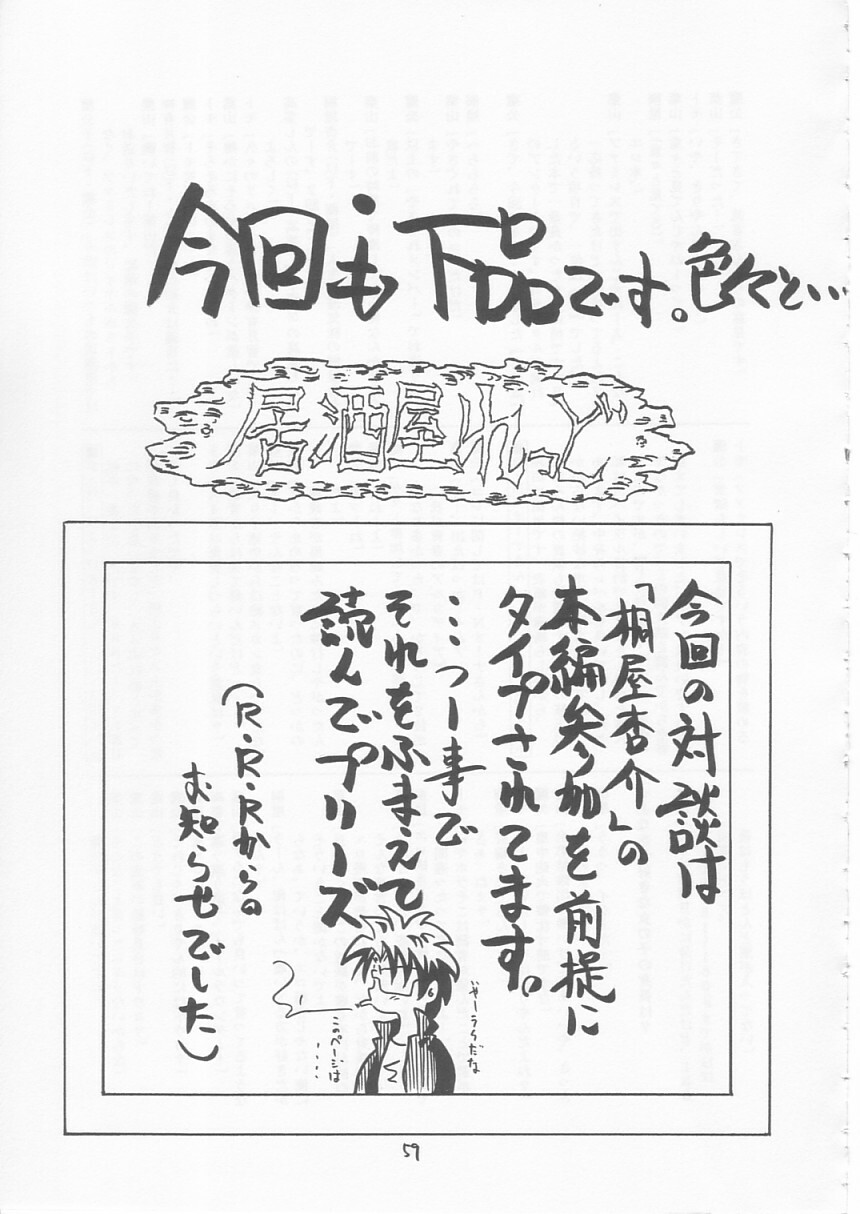 今回も下品です。色々と…
居酒屋れっど
今回の対談は
「桐屋杏介」の
本編参加を前提に
タイプされてます。
…つー事で
それをふまえて
読んでプリーズ
(R・R・Rからの
お知らせでした)
このページは
……
59